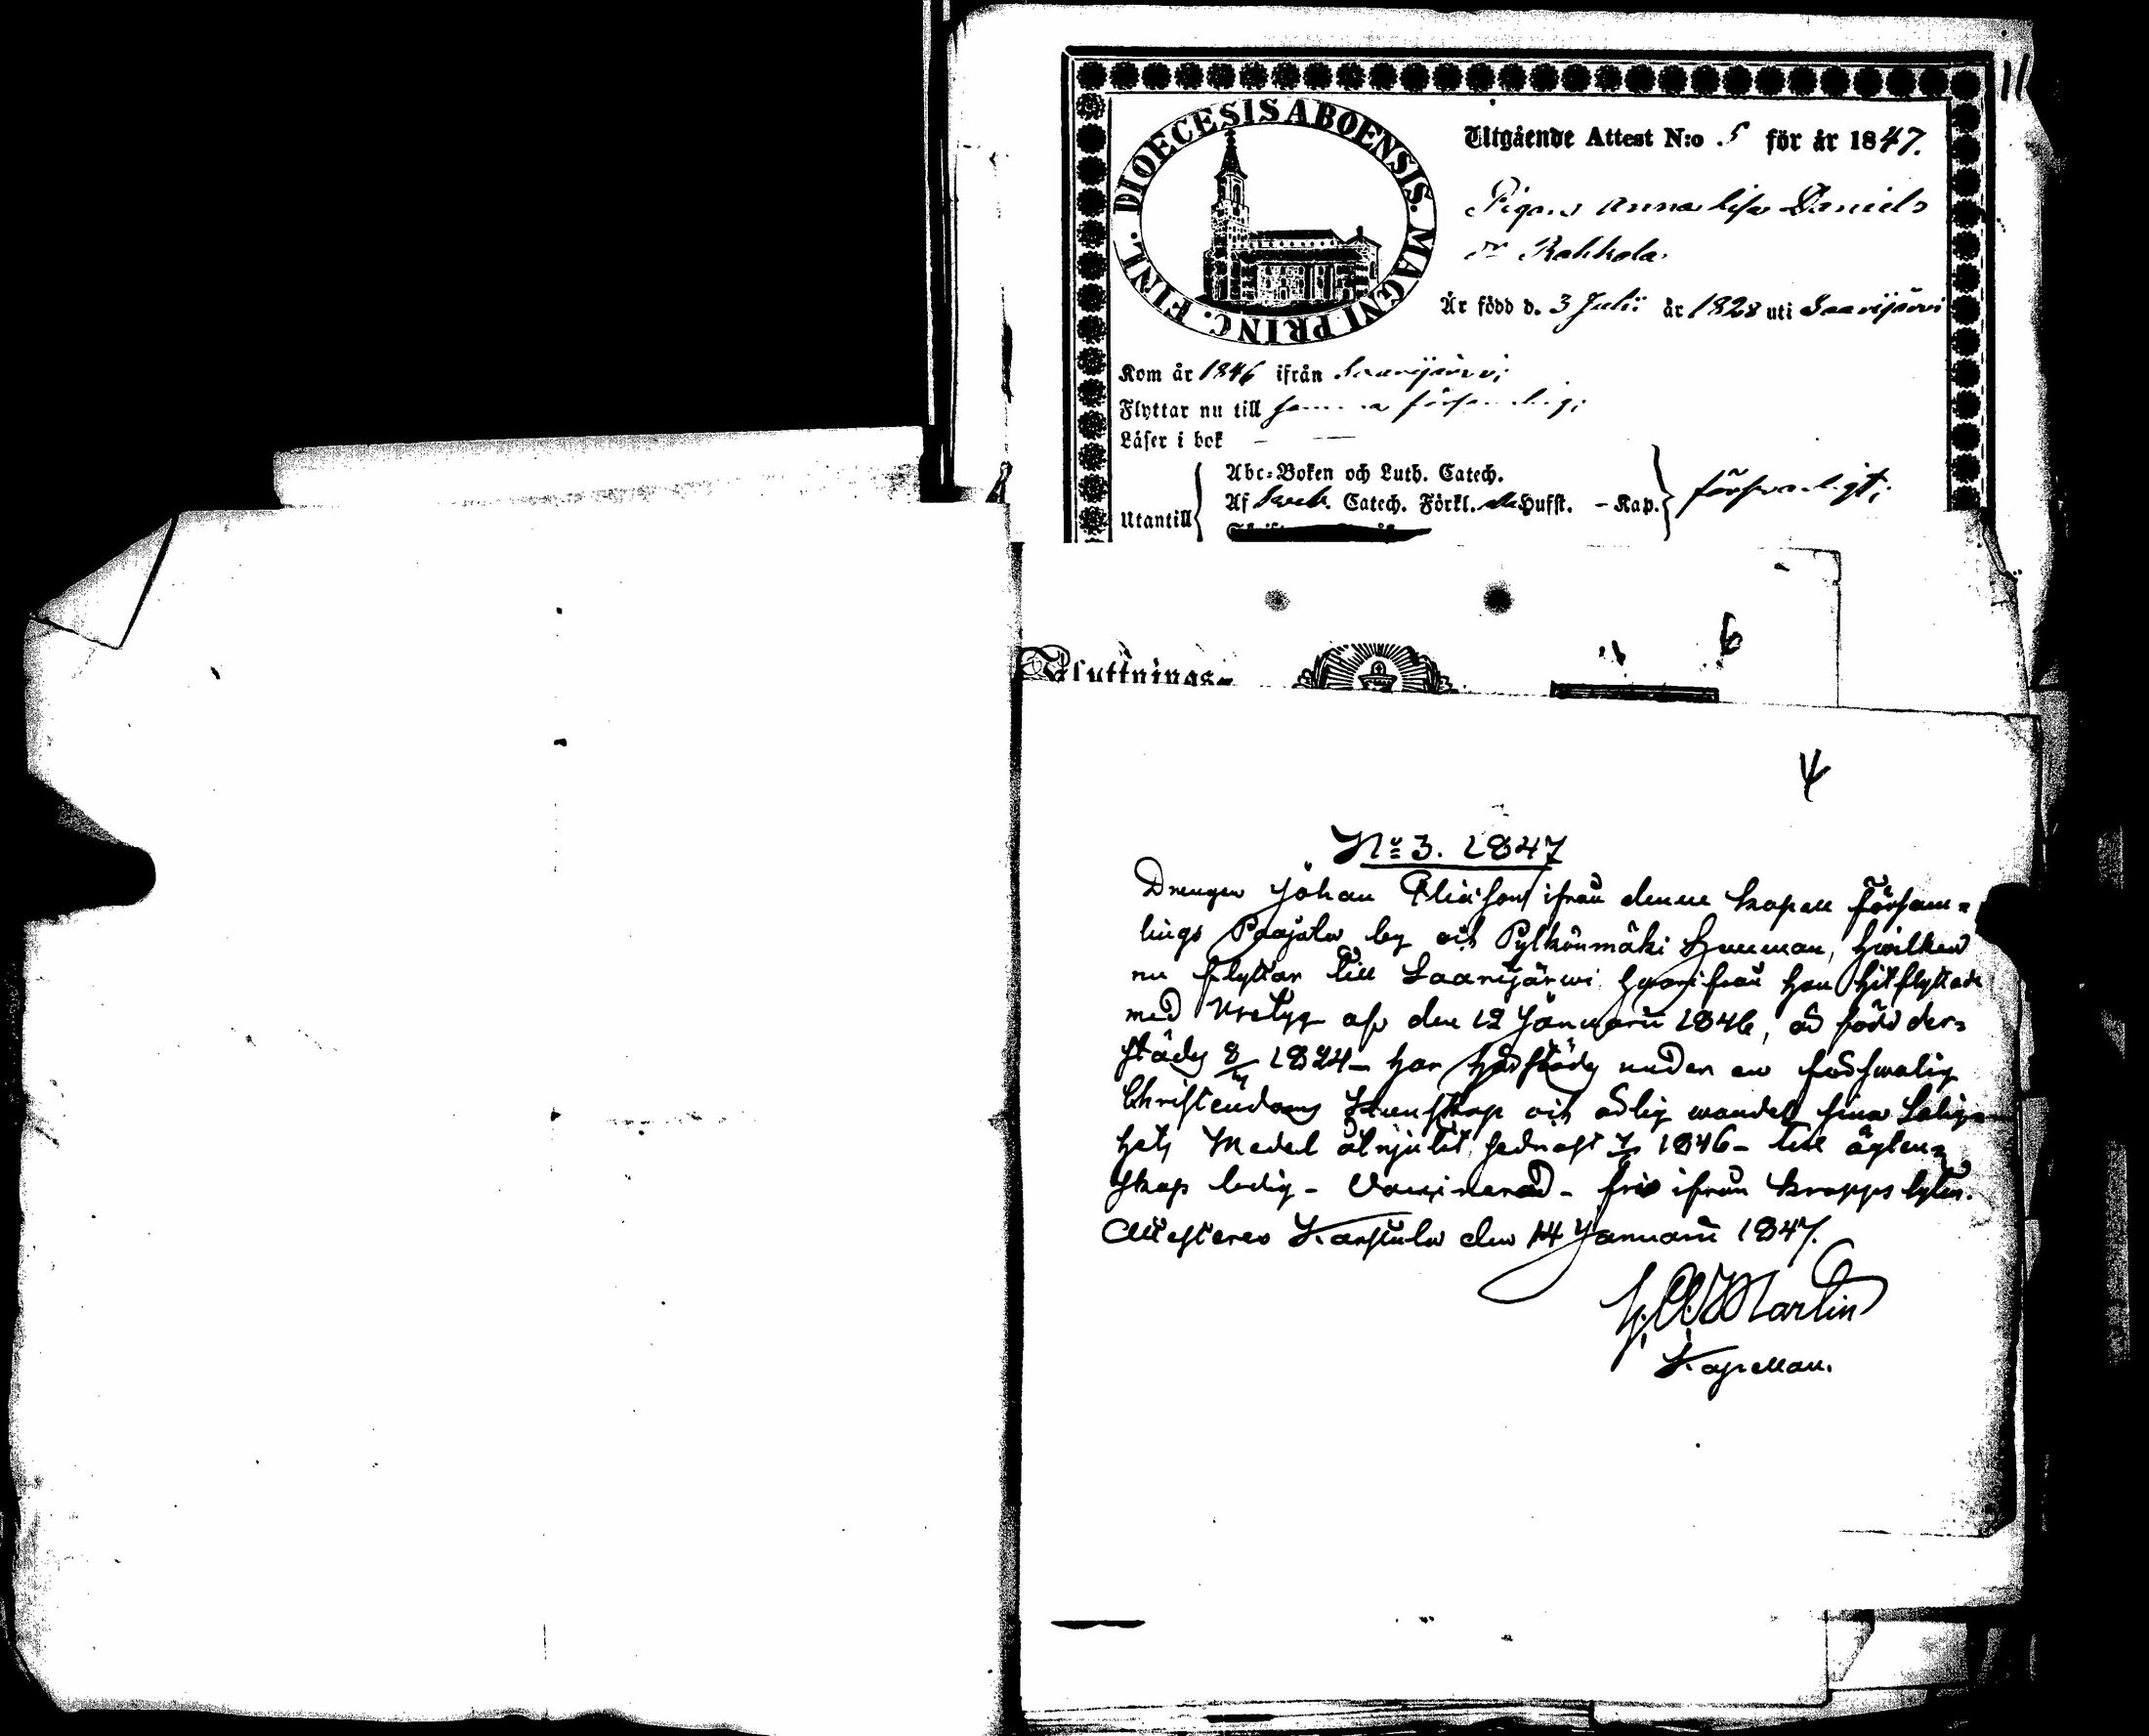 11
DIOECESIS ABOENSIS. MAGNI PRINC. FINL.
Utgående Attest N:o 5 för år 1847.
Pigan Anna Lisa Daniels
dr Rahkola
Är född d. 3 Julii år 1828 uti Saarijärvi
Kom år 1846 ifrån Saarijärvi
Flyttar nu till samma församling;
Läser i bok — —
Abc-Boken och Luth. Catech.
Utantill
Af Sveb. Catech. Förkl. Hufst. - Kap.
försvarligt;
6
Flyttnings-
4
No 3. 1847
Drengen Johan Eliasson ifrån denne Kapell Försam=
lings Paajala by och Pylkönmäki hemman, hwilken
nu flyttar till Saarijärwi hwarifrån han hitflyttade
med betyg af den 12 Januarii 1846, och född der=
städes 8/ 1824 – har härstädes under en försvarlig
Christendoms Kunskap och ärlig wandel sina Salig=
hets Medel åtnjutit sednast 1846 – till ägten=
skap ledig – Vaccinerad – fri ifrån kropps lyten.
Attesteras Karstula den 14 Januarii 1847.
Martin
Kapellan.